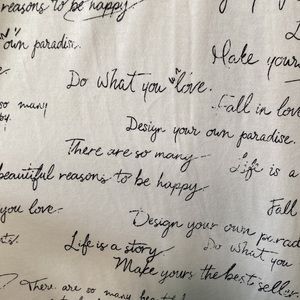 reasons to be happy.
own paradise.
Make your
Do what you love.
so many
Fall in love
Design your own paradise.
There are so many
Life is a
beautiful reasons to be happy
you love
Fall
Design your own parad
Life is a story
Do what you
Make yours the best seller
There are so many